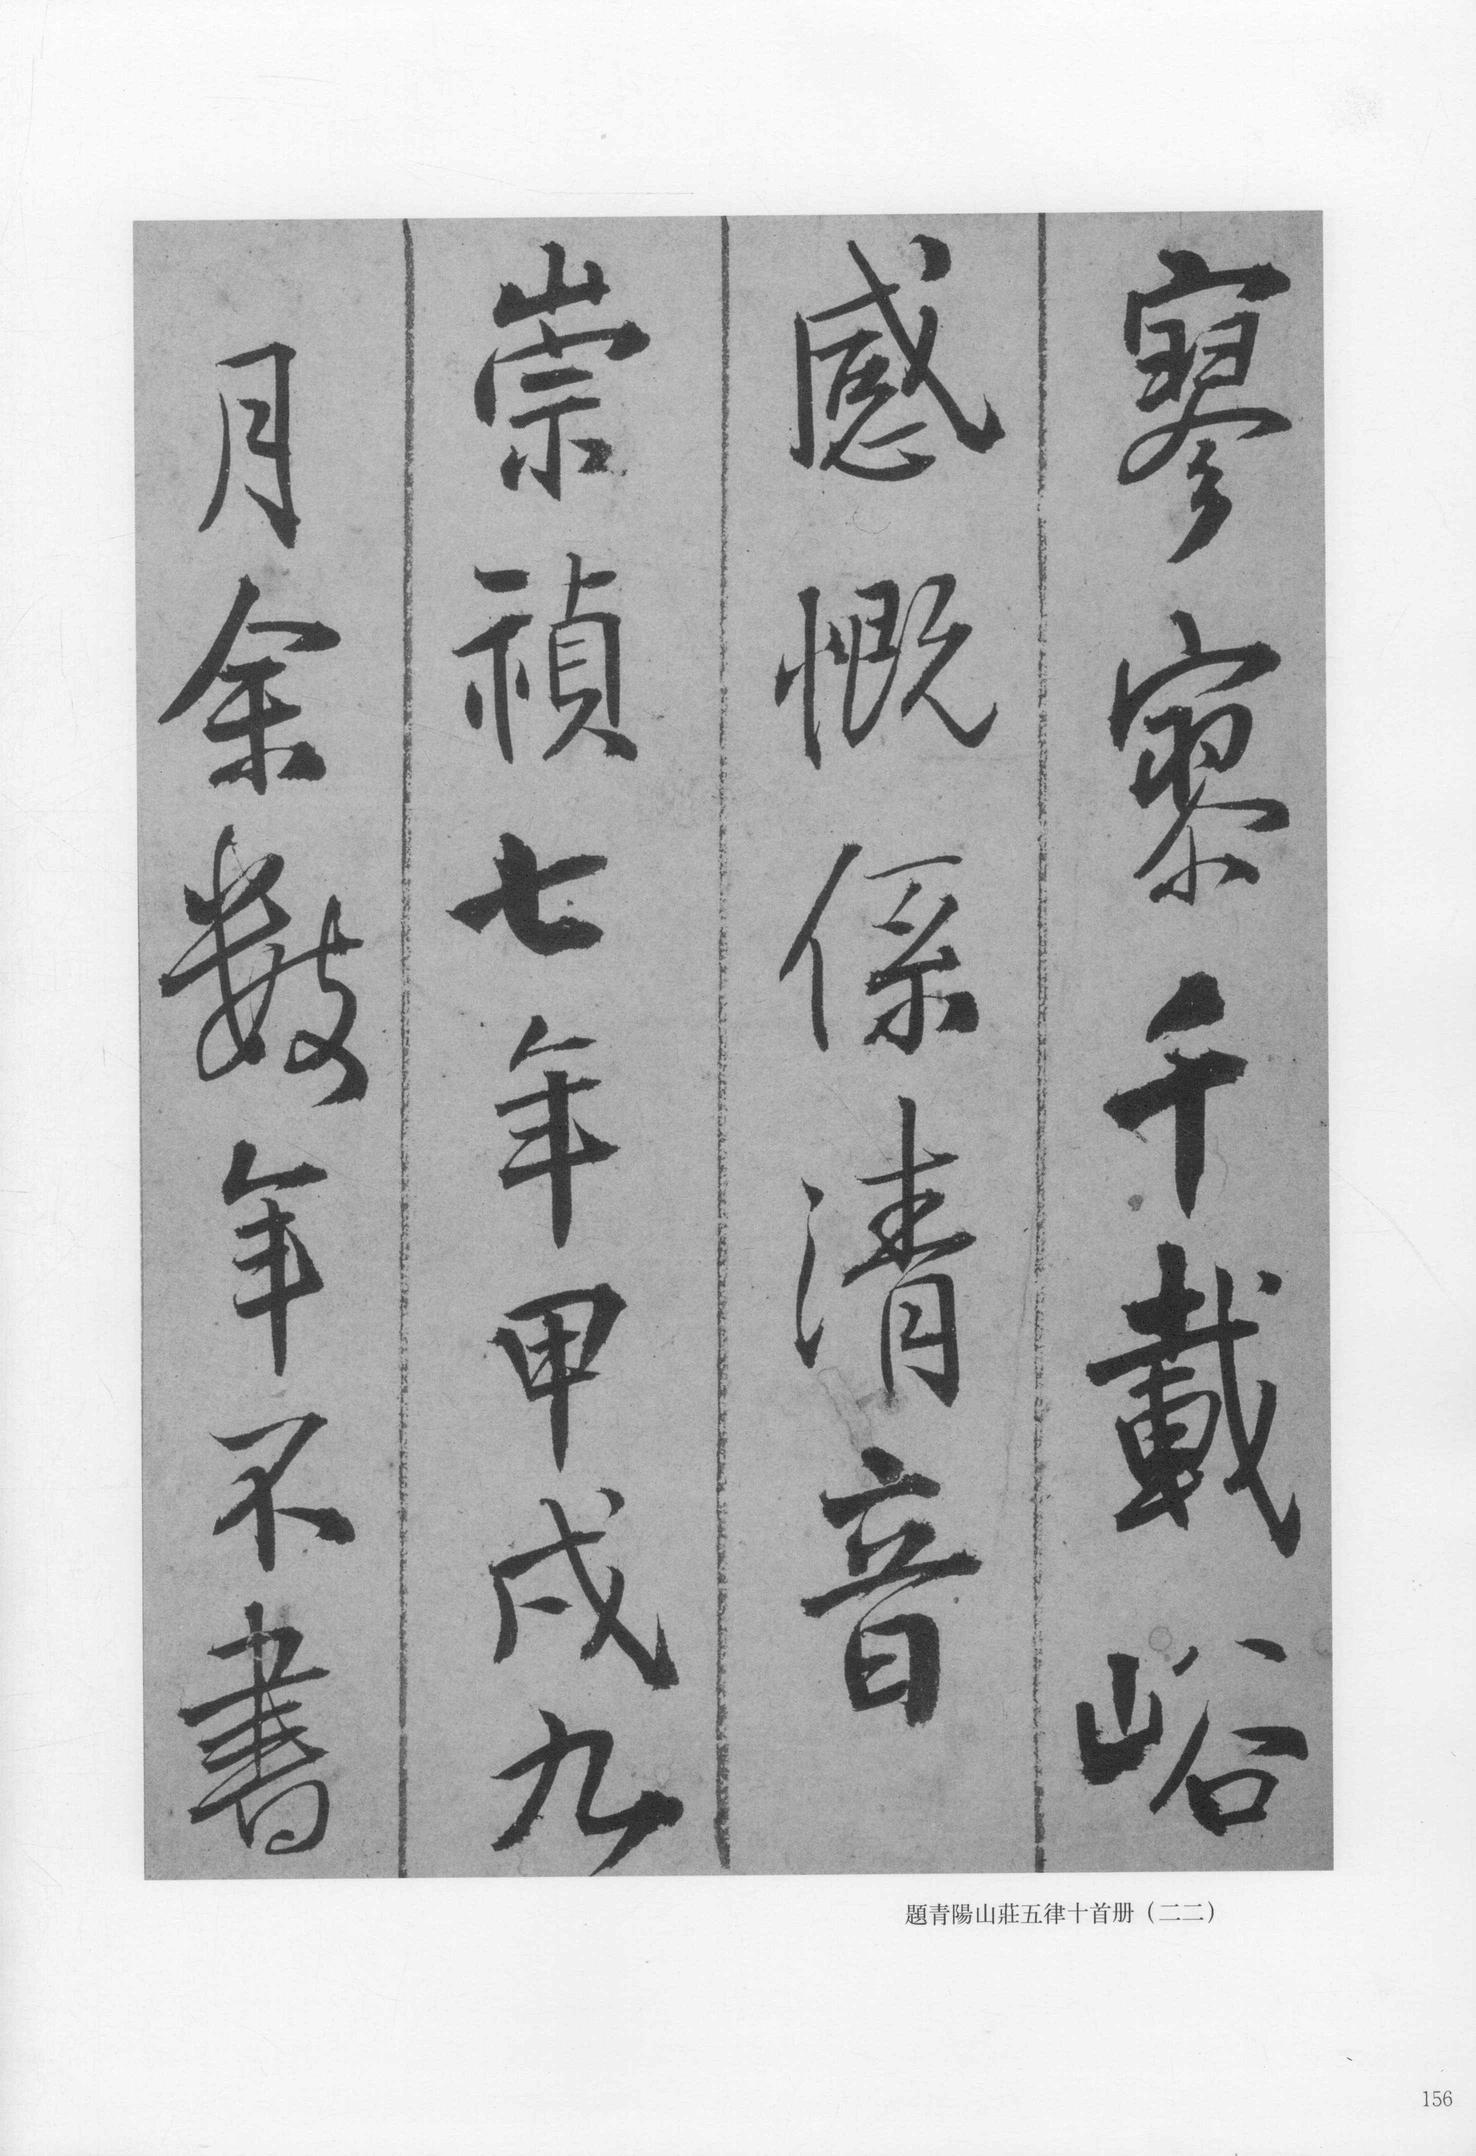 寥寥千載峪
感慨係清音
崇禎七年甲戌九
月余數年不書
題青陽山莊五律十首册（二二）
156